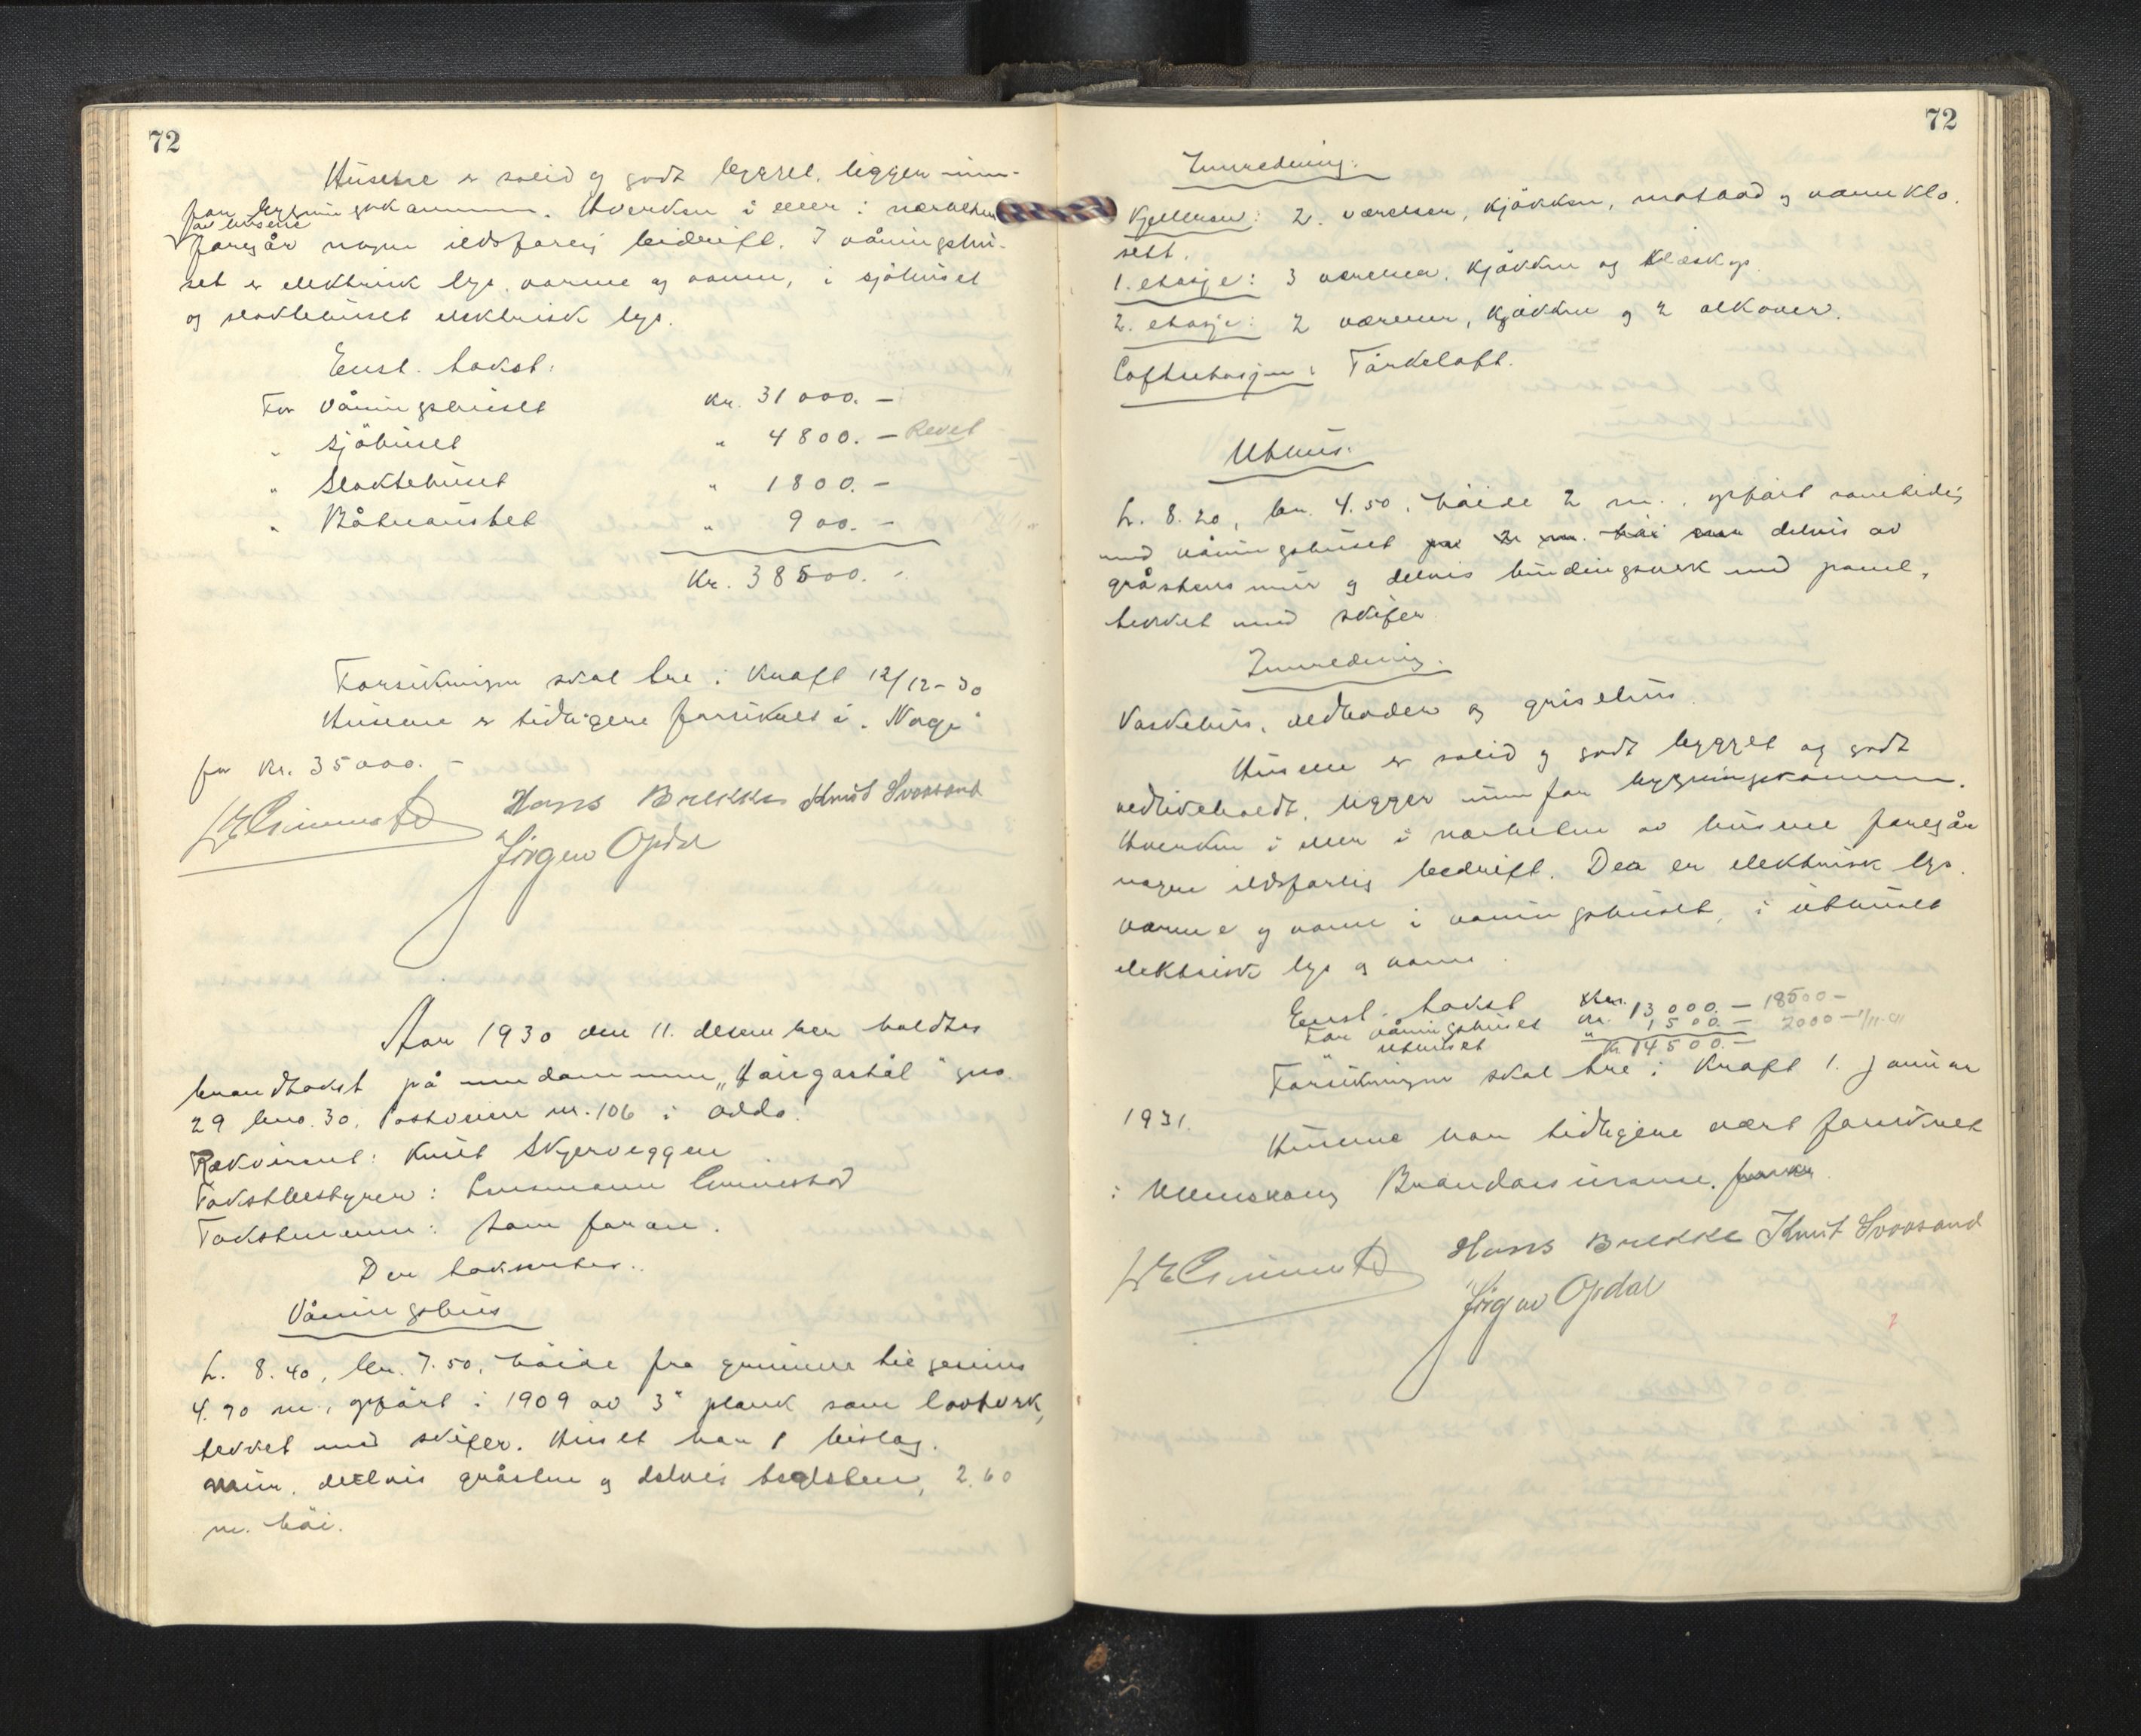 72
Husene er solid og godt bygget, ligger inn-
for bygningskammen. Hverken i eller i nærheten
av husene
foregår nogen ildsfarlig bedrift. I våningshu-
set er elektrisk lys, varme og vann, i sjöhuset
og slaktehuset elektrisk lys.
Enst. takst:
For Våningshuset Kr. 31000. -
" Sjöhuset " 4800. - Revet
" Slaktehuset " 1800. -
" Båtnaustet " 900. -
Kr. 38500. -
Forsikringen skal tre i kraft 12/12-30
Husene er tidligere forsikret i "Norge"
for kr. 35000. -
Hans Brekke Knut Svoosand
Jörgen Opdal
Aar 1930 den 11. desember holdtes
brandtakst på eiendommen "Haugastöl" gno.
29 bno. 30. Postveien nr. 106 i Odda.
Rekvirent: Knut Skjerveggen
Takstbestyrer: Lensmann Grimestad
Takstmenn: Som foran.
Der takseredes..
Våningshus
L. 8.40, br. 7.50, höide fra grunnmur til gesims
4.70 m., opfört i 1909 av 3" plank som lavtverk,
tekket med skifer. Huset har 1 bislag.
mur, delvis gråsten og delvis teglsten, 2.60
m. höi.
72
Innredning:
Kjelleren: 2. værelser, kjökken, matbod og vannklo.
sett.
1. etasje: 3 værelser, kjökken og klæskap.
2. etasje: 2 værelser, kjökken og 2 alkover.
Loftsetasjen: Törkeloft.
Uthus.
L. 8.20, br. 4.50, höide 2 m., opfört samtidig
med våningshuset på 2 m. höi mur delvis av
gråstens mur og delvis bindingsverk med panel,
tekket med skifer
Innredning.
Vaskehus, vedboder og grisehus.
Husene er solid og godt bygget og godt
vedlikeholdt, ligger innfor bygningskammen.
Hverken i eller i nærheten av husene foregår
nogen ildsfarlig bedrift. Der er elektrisk lys,
varme og vann i våningshuset, i uthuset
elektrisk lys og vann.
Enst. takst
For våningshuset Kr. 13000. - 18500 -
" uthuset " 1500. - 2000 -
Kr. 14500. -
Forsikringen skal tre i kraft 1. januar
1931.
Husene har tidligere vært forsikret
i Ullensvang Brandassurance. for kr
Hans Brekke Knut Svoosand
Jörgen Opdal